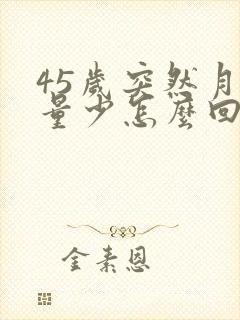 45歲突然月
量少怎麼回
金素恩